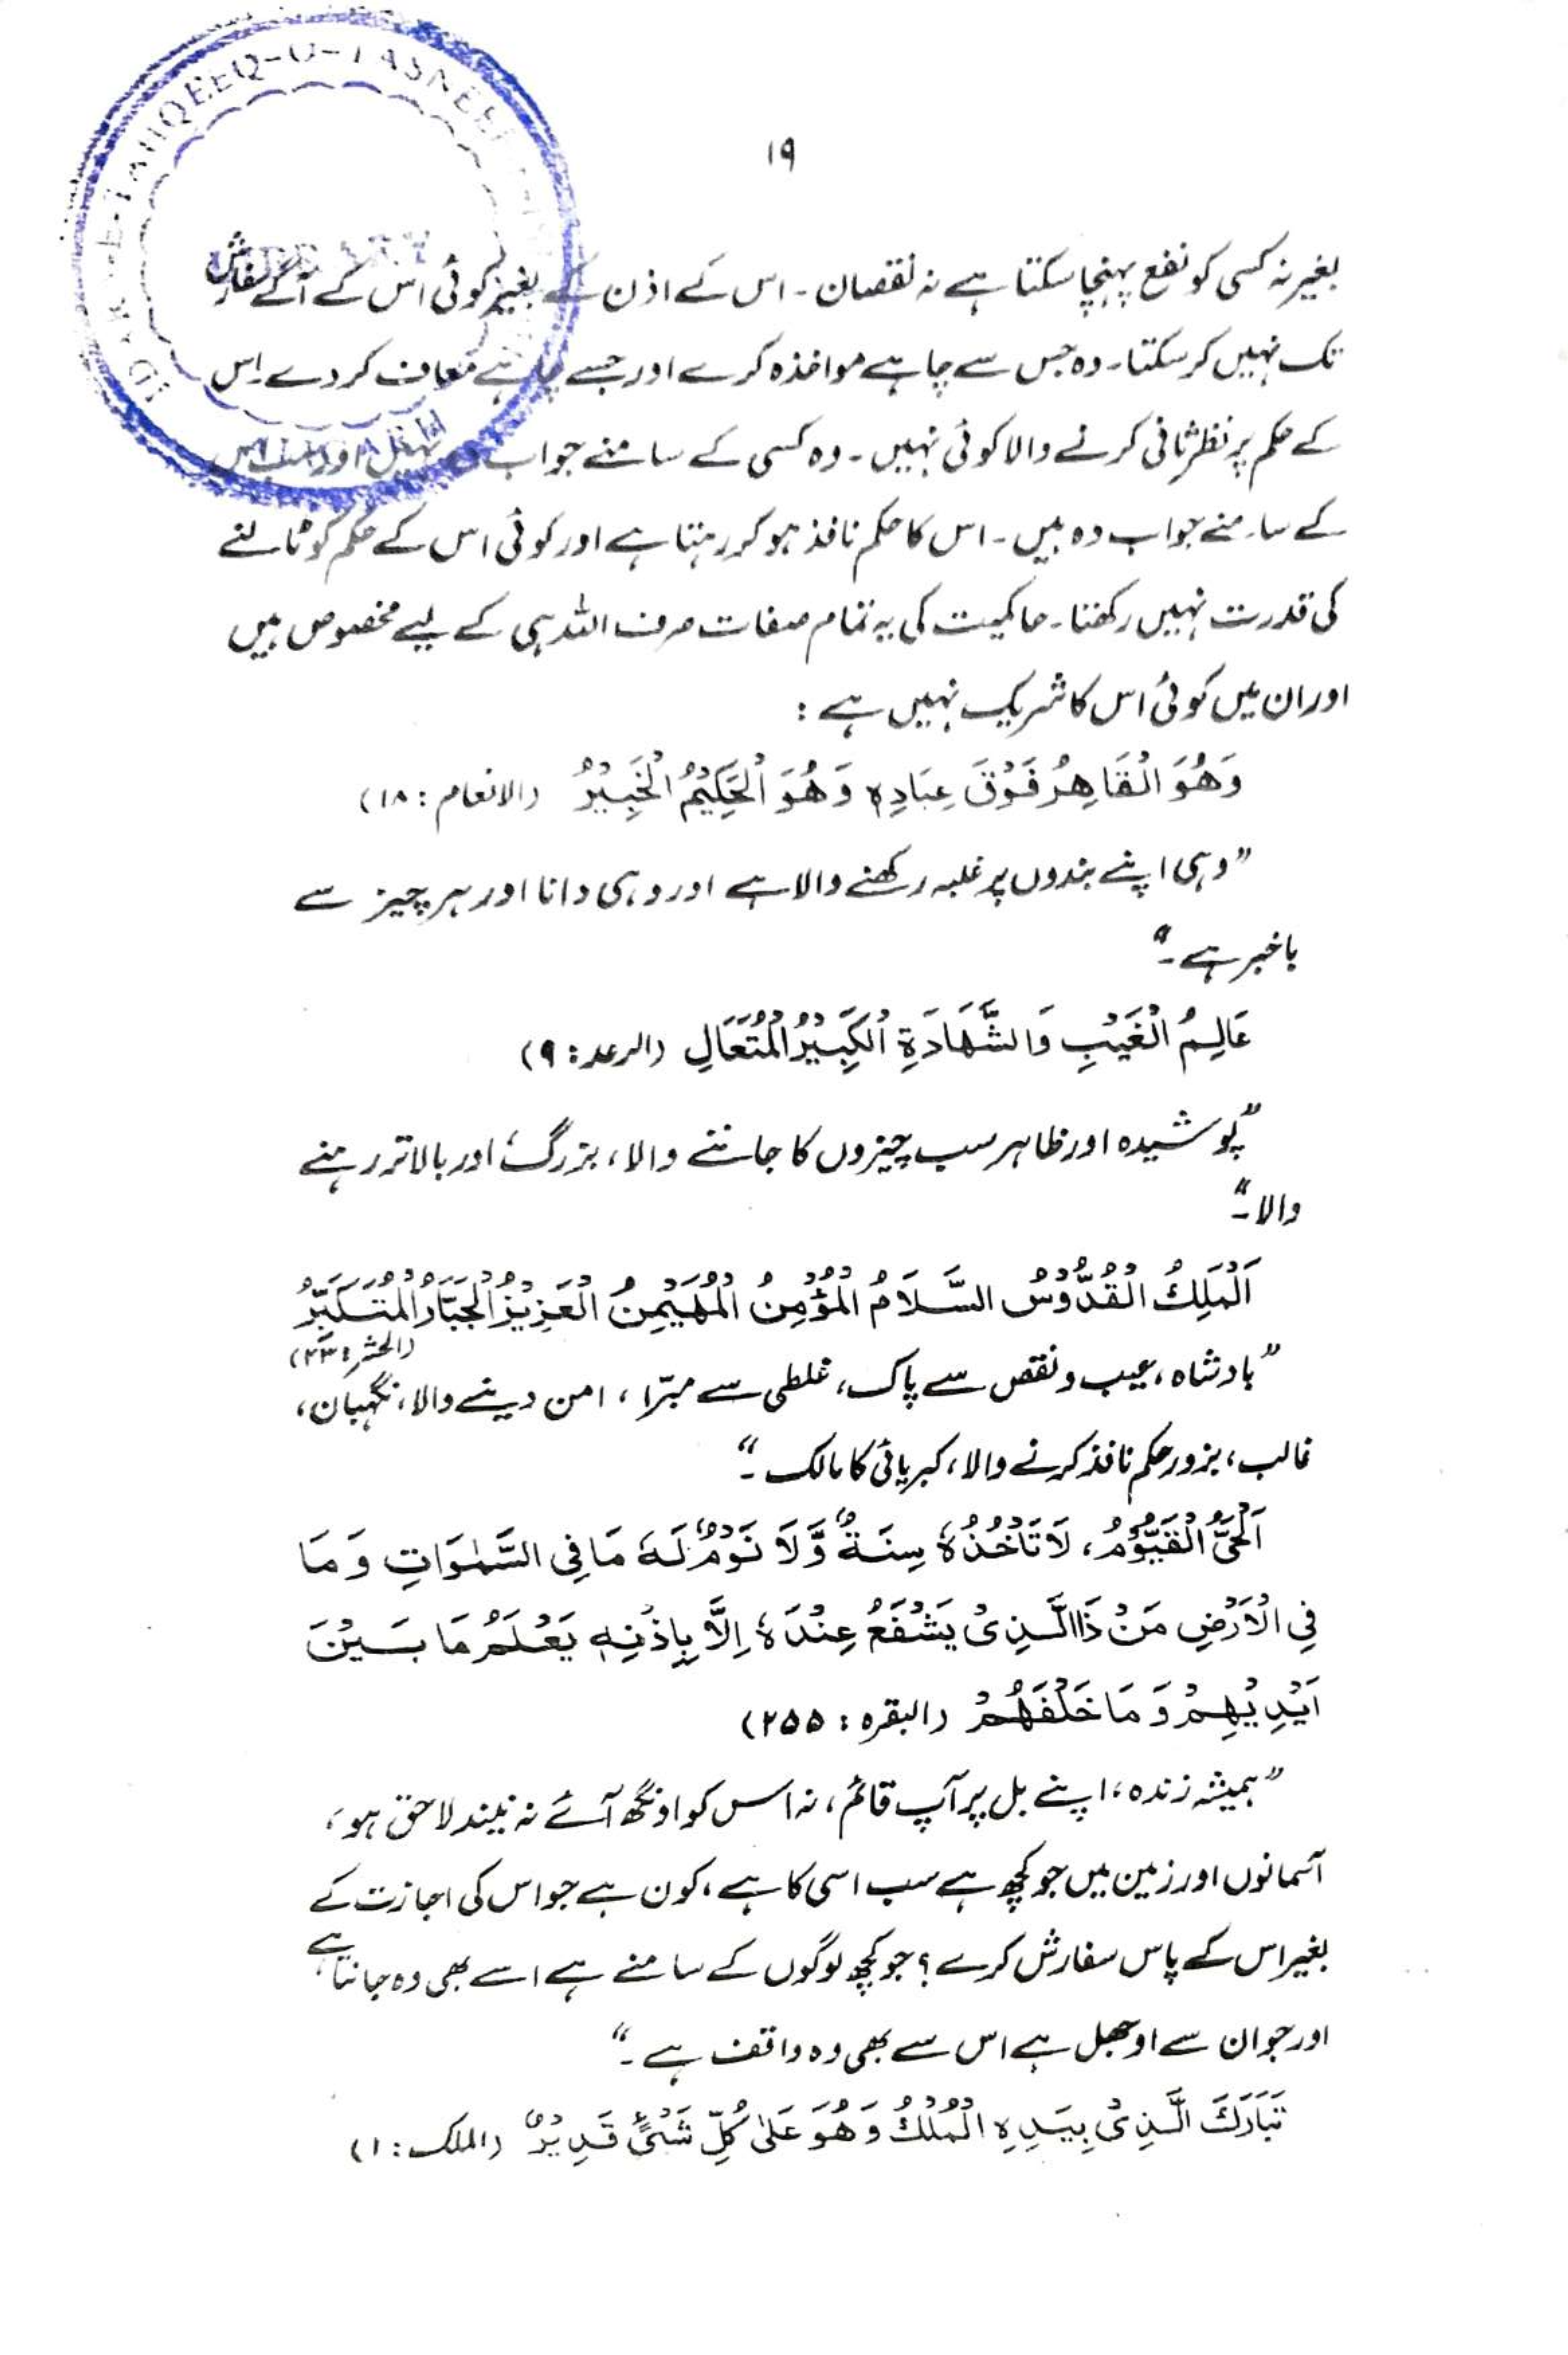 ۱۹
بغیر نہ کسی کو نفع پہنچا سکتا ہے نہ نقصان۔ اس کے اذن کے بغیر کوئی اس کے آگے سفارش
تک نہیں کر سکتا۔ وہ جس سے چاہے مواخذہ کرے اور جسے چاہے معاف کر دے۔ اس
کے حکم پر نظر ثانی کرنے والا کوئی نہیں۔ وہ کسی کے سامنے جواب دہ نہیں اور سب اس
کے سامنے جواب دہ ہیں۔ اس کا حکم نافذ ہو کر رہتا ہے اور کوئی اس کے حکم کو ٹالنے
کی قدرت نہیں رکھتا۔ حاکمیت کی یہ تمام صفات صرف اللہ ہی کے لیے مخصوص ہیں
اور ان میں کوئی اس کا شریک نہیں ہے:
وَهُوَ الْقَاهِرُ فَوْقَ عِبَادِهٖ وَهُوَ الْحَكِيْمُ الْخَبِيْرُ (الانعام: ۱۸)
”وہی اپنے بندوں پر غلبہ رکھنے والا ہے اور وہی دانا اور ہر چیز سے
باخبر ہے۔“
عَالِمُ الْغَيْبِ وَالشَّهَادَةِ الْكَبِيْرُ الْمُتَعَالِ (الرعد: ۹)
”پوشیدہ اور ظاہر سب چیزوں کا جاننے والا، بزرگ، اور بالاتر رہنے
والا۔“
اَلْمَلِكُ الْقُدُّوْسُ السَّلَامُ الْمُؤْمِنُ الْمُهَيْمِنُ الْعَزِيْزُ الْجَبَّارُ الْمُتَكَبِّرُ
(الحشر: ۲۳)
”بادشاہ، عیب و نقص سے پاک، غلطی سے مبرّا، امن دینے والا، نگہبان،
غالب، بزور حکم نافذ کرنے والا، کبریائی کا مالک۔“
اَلْحَيُّ الْقَيُّوْمُ، لَا تَأْخُذُهٗ سِنَةٌ وَّلَا نَوْمٌ لَهٗ مَا فِي السَّمٰوَاتِ وَمَا
فِي الْاَرْضِ مَنْ ذَا الَّذِىْ يَشْفَعُ عِنْدَهٗ اِلَّا بِاِذْنِهٖ يَعْلَمُ مَا بَيْنَ
اَيْدِيْهِمْ وَمَا خَلْفَهُمْ (البقرہ: ۲۵۵)
”ہمیشہ زندہ، اپنے بل پر آپ قائم، نہ اس کو اونگھ آئے نہ نیند لاحق ہو،
آسمانوں اور زمین میں جو کچھ ہے سب اسی کا ہے، کون ہے جو اس کی اجازت کے
بغیر اس کے پاس سفارش کرے؟ جو کچھ لوگوں کے سامنے ہے اسے بھی وہ جانتا ہے
اور جو ان سے اوجھل ہے اس سے بھی وہ واقف ہے۔“
تَبَارَكَ الَّذِىْ بِيَدِهِ الْمُلْكُ وَهُوَ عَلٰى كُلِّ شَىْءٍ قَدِيْرٌ (الملک: ۱)